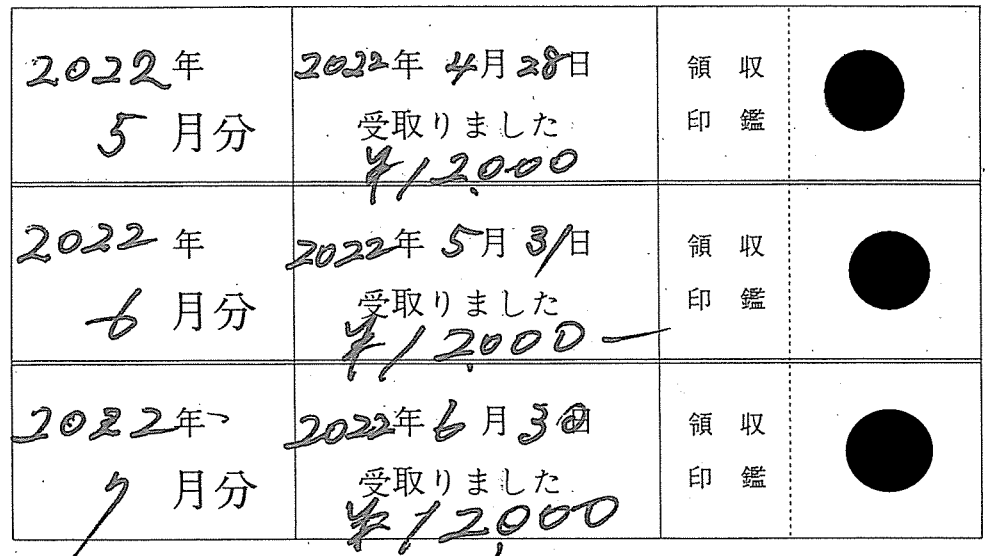 2022年
5月分
2022年 4月28日
受取りました
¥12,000
領収
印鑑
2022年
6月分
2022年 5月31日
受取りました
¥12,000-
領収
印鑑
2022年
7月分
2022年 6月30日
受取りました
¥12,000
領収
印鑑